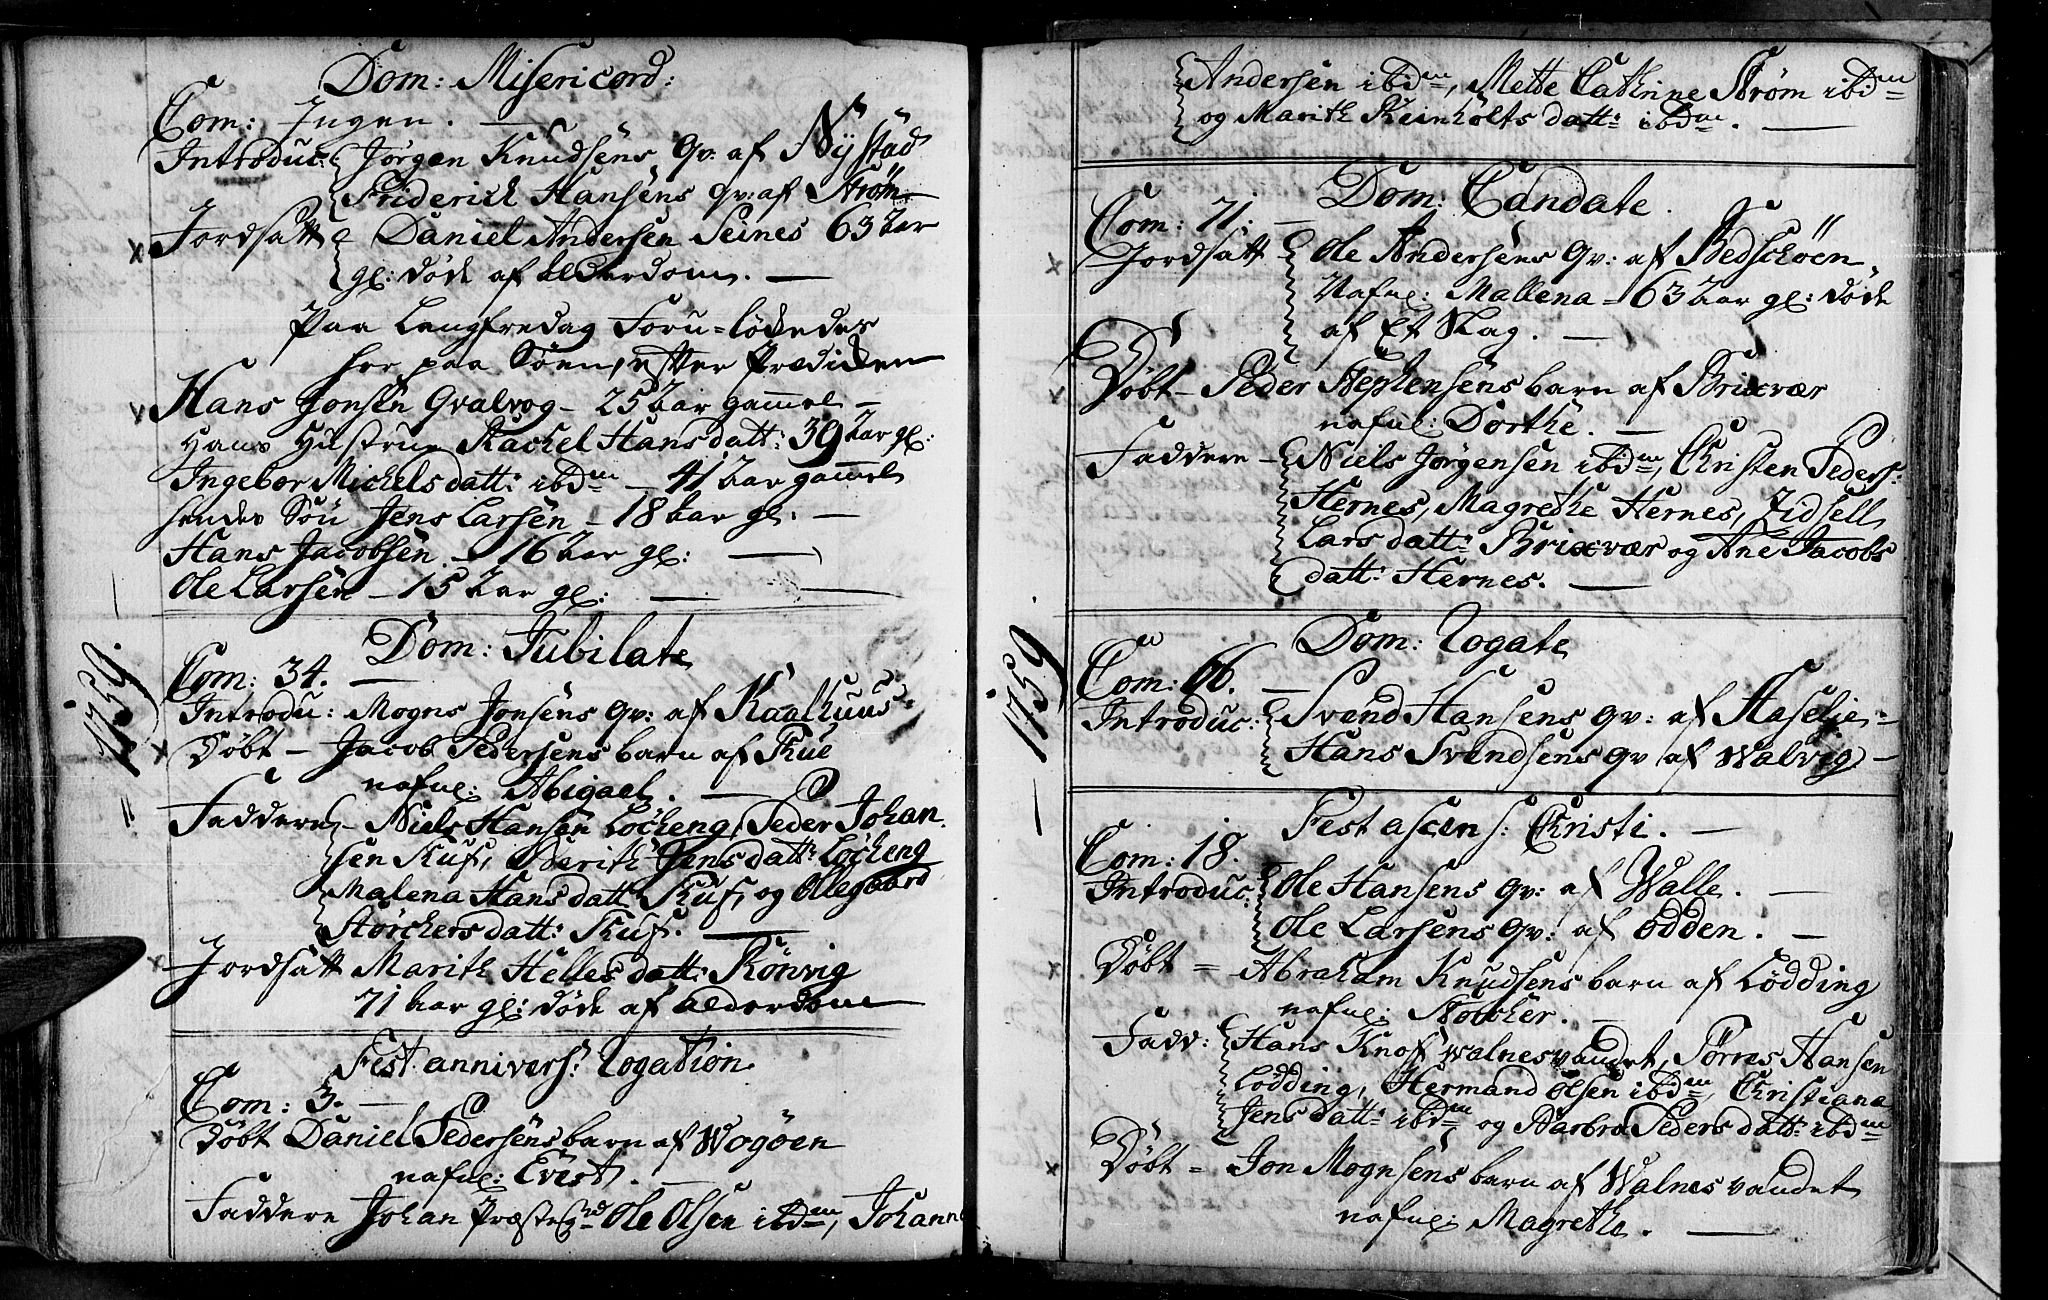 Dom: Misericord:
Com: Ingen.
Introduc: Jørgen Knudsens qv: af Nÿstad
Friderich Hansens qv: af Strøm
Jordsatt Daniel Andersen Seines 63 aar
gl: døde af alderdom.
Paa Langfredag Foru=lökedes
her paa Söen, efter Prædiken
Hans Jonsen Qvalvog - 25 aar gamel
Hans Hustrue Rachel Hansdatt: 39 aar gl:
Ingebor Michelsdatt: ibdm - 41 aar gamel
hendes Sön Jens Larsen - 18 aar gl.
Hans Jacobsen - 16 aar gl:
Ole Larsen - 15 aar gl:
1756.
Dom: Jubilate
Com: 34.
Introdu: Mogns Jonsens qv: af Kaalhuus
Döbt - Jacob Pedersens barn af Kue
nafnl: Abigael.
Faddere - Niels Hansen Löcheng, Peder Johan
sen Kuf, Berith Jensdatt: Löcheng
Malena Hansdatt: Kuf, og Ollegaard
Störchersdatt: Kuf.
Jordsatt Marith Hellesdatt: Rönvig
71 aar gl: döde af alderdom
Fest annivers: Rogation
Com: 3.
Döbt Daniel Pedersens barn af Wogöen
nafnl: Evert.
Faddere Johan Præstegrd Ole Olsen ibdm, Johann
Andersen ibdm, Mette Cathrine Strøm ibidm
og Marith Reinholts datt: ibdm.
Dom: Candate
Com: 71.
Jordsatt Ole Andersens qv: af Bedschöen
Nafnl: Mallena - 63 aar gl: döde
af Et Slag.
Döbt - Peder Stephensens barn af Brixvær
nafnl: Dorthe.
Faddere - Niels Jørgensen ibdm, Christen Peders:
Hernes, Magrethe Hernes, Zidsell
Larsdatt: Brixvær og Ane Jacobs
datt: Hernes.
1756
Dom: Rogate
Com: 66.
Introduc: Svend Hansens qv: af Haselje
Hans Svendsens qv af Walvig
Fest ascens: Christi.
Com: 18.
Introduc: Ole Hansens qv: af Walle.
Ole Larsens qv: af Odden.
Döbt = Abraham Knudsens barn af Lödding
nafnl: Störcher.
Fadd: Hans Knof Walnesvandet, Törres Hansen
Lödding, Hermand Olsen ibdm, Christiana
Jensdatt: ibdm og Barbro Pedersdatt: ibdm
Döbt = Jon Mognsens barn af Walnesvandet
nafnl: Magrethe.